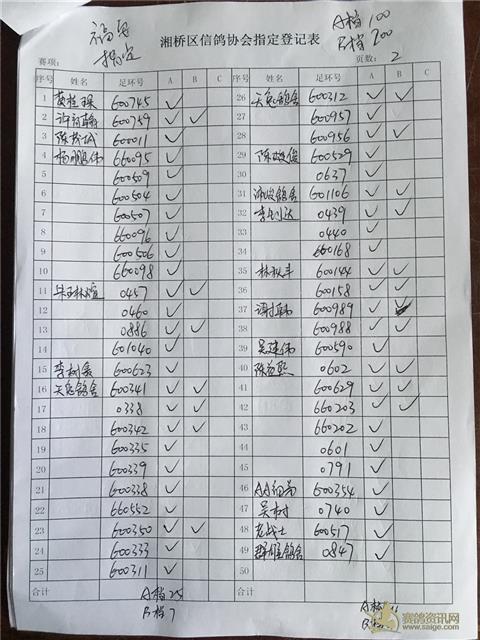 福多
指定
A档100
B档200
湘桥区信鸽协会指定登记表
赛项: 页数: 2
序号 姓名 足环号 A B C 序号 姓名 足环号 A B C
1 600745 ✓ 26 天宽鸽舍 600312 ✓ ✓
2 600759 ✓ ✓ 27 600957 ✓
3 600011 ✓ 28 600956 ✓ ✓
4 660095 ✓ 29 600529 ✓
5 600509 ✓ 30 0637 ✓
6 600504 ✓ 31 601106 ✓ ✓
7 600507 ✓ 32 李钊达 0439 ✓ ✓
8 660096 ✓ 33 0440 ✓
9 600506 ✓ 34 660168 ✓
10 660098 ✓ 35 林秋丰 600144 ✓ ✓
11 0457 ✓ ✓ 36 600158 ✓ ✓
12 0460 ✓ 37 600989 ✓ ✓
13 0886 ✓ ✓ 38 600988 ✓ ✓
14 601040 ✓ 39 吴建伟 600590 ✓
15 600623 ✓ 40 陈益熙 0602 ✓ ✓
16 天宽鸽舍 600341 ✓ ✓ 41 600629 ✓ ✓
17 0338 ✓ ✓ 42 660203 ✓ ✓
18 600342 ✓ ✓ 43 660202 ✓
19 600335 ✓ 44 0601 ✓
20 600339 ✓ 45 0791 ✓
21 600338 ✓ 46 600354 ✓
22 660552 ✓ 47 吴树 0740 ✓
23 600350 ✓ ✓ 48 老战士 600517 ✓
24 600333 ✓ 49 群雁鸽舍 0847 ✓
25 600311 ✓ 50
合计 A档25 合计 A档
B档7 B档
赛鸽资讯网
www.saige.com